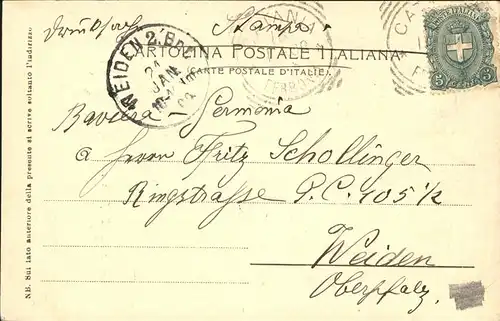 Drucksache Stampe
CARTOLINA POSTALE ITALIANA
(CARTE POSTALE D'ITALIE)
WEIDEN 2. B
24
JAN
CATANIA
FERROVIA
CA
5 5
Baviera — Germania
a Herrn Fritz Schollinger
Ringstrasse P.C. 105 1/2
Weiden
Oberpfalz.
NB. Sul lato anteriore della presente si scrive soltanto l'indirizzo.